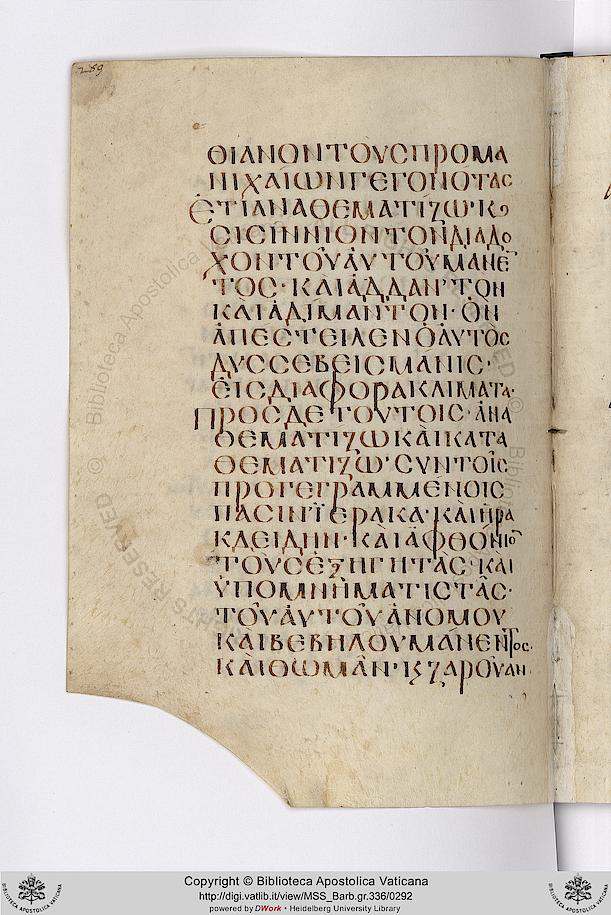 289
ΘΙΑΝΟΝΤΟΥΣΠΡΟΜΑ
ΝΙΧΑΙΩΝΓΕΓΟΝΟΤΑΣ
ΕΤΙΑΝΑΘΕΜΑΤΙΖΩ·Κ
ΣΙΣΙΝΝΙΟΝΤΟΝΔΙΑΔΟ
ΧΟΝΤΟΥΑΥΤΟΥΜΑΝΕ
ΤΟΣ·ΚΑΙΑΔΔΑΝ'ΤΟΝ
ΚΑΙΑΔΙΜΑΝΤΟΝ·ΟΝ
ΑΠΕΣΤΕΙΛΕΝΟΑΥΤΟΣ
ΔΥΣΣΕΒΕΙΣΜΑΝΙΣ·
ΕΙΣΔΙΑΦΟΡΑΚΛΙΜΑΤΑ·
ΠΡΟΣΔΕΤΟΥΤΟΙΣ·ΑΝΑ
ΘΕΜΑΤΙΖΩΚΑΙΚΑΤΑ
ΘΕΜΑΤΙΖΩ·ΣΥΝΤΟΙΣ
ΠΡΟΓΕΓΡΑΜΜΕΝΟΙΣ
ΠΑΣΙΝ·ΪΕΡΑΚΑ·ΚΑΙΗΡΑ
ΚΛΕΙΔΗΝ·ΚΑΙΑΦΘΟΝΙΟ
ΤΟΥΣΕΞΗΓΗΤΑΣ·ΚΑΙ
ΥΠΟΜΝΗΜΑΤΙΣΤΑΣ·
ΤΟΥΑΥΤΟΥΑΝΟΜΟΥ
ΚΑΙΒΕΒΗΛΟΥΜΑΝΕΝΤΟΣ·
ΚΑΙΘΩΜΑΝ·ΚΖΑΡΟΥΑΝ
Copyright © Biblioteca Apostolica Vaticana
http://digi.vatlib.it/view/MSS_Barb.gr.336/0292
powered by DWork - Heidelberg University Library